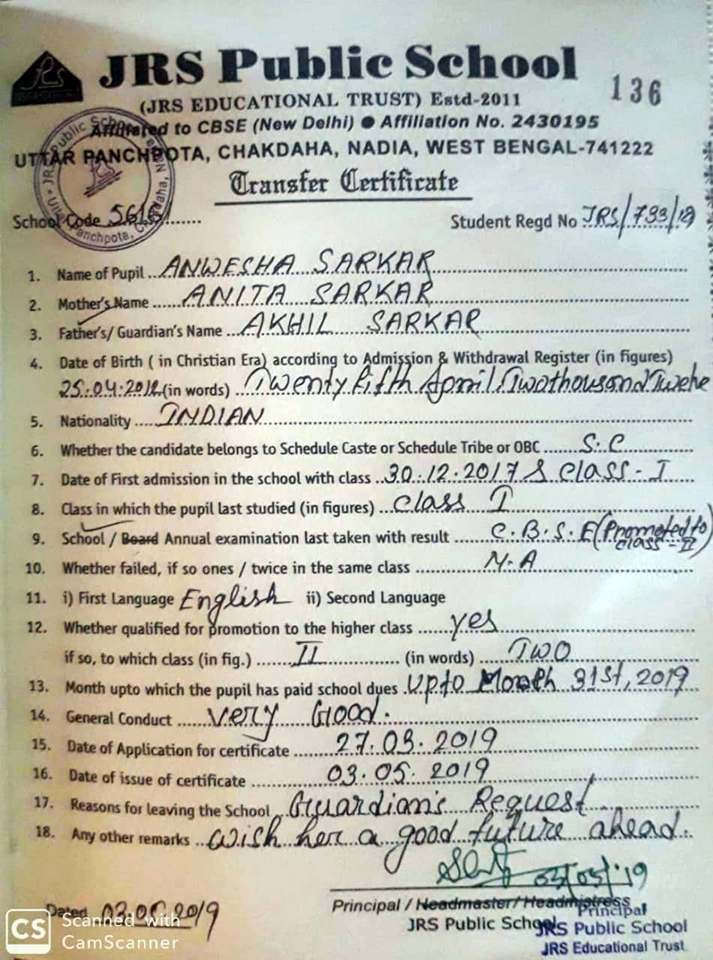 JRS Public School
136
(JRS EDUCATIONAL TRUST) Estd-2011
Affiliated to CBSE (New Delhi) ● Affiliation No. 2430195
UTTAR PANCHPOTA, CHAKDAHA, NADIA, WEST BENGAL-741222
Transfer Certificate
School Code 5616 Student Regd No JRS/733/18
1. Name of Pupil ANWESHA SARKAR
2. Mother's Name ANITA SARKAR
3. Father's/ Guardian's Name AKHIL SARKAR
4. Date of Birth ( in Christian Era) according to Admission & Withdrawal Register (in figures)
25.04.2012 (in words) Twenty fifth April Twothousand Twelve
5. Nationality INDIAN
6. Whether the candidate belongs to Schedule Caste or Schedule Tribe or OBC S.C
7. Date of First admission in the school with class 30.12.2017 & Class - I
8. Class in which the pupil last studied (in figures) Class I
9. School / Board Annual examination last taken with result C.B.S.E (Promoted to class - II)
10. Whether failed, if so ones / twice in the same class N.A
11. i) First Language English ii) Second Language
12. Whether qualified for promotion to the higher class yes
if so, to which class (in fig.) II (in words) TWO
13. Month upto which the pupil has paid school dues Upto March 31st, 2019
14. General Conduct very Good.
15. Date of Application for certificate 27.03.2019
16. Date of issue of certificate 03.05.2019
17. Reasons for leaving the School Guardian's Request
18. Any other remarks wish her a good future ahead.
03/05/19
Dated 03.05.2019
Principal / Headmaster/ Headmistress
JRS Public School
Principal
JRS Public School
JRS Educational Trust
CS Scanned with
CamScanner